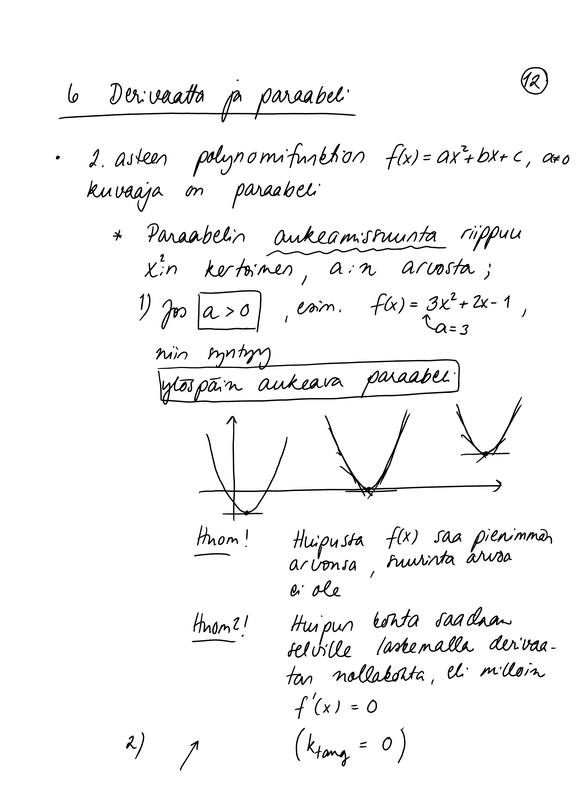 12
6 Derivaatta ja paraabeli
• 2. asteen polynomifunktion f(x) = ax²+bx+c, a≠0
kuvaaja on paraabeli
* Paraabelin aukeamissuunta riippuu
x²:n kertoimen, a:n arvosta;
1) Jos a > 0, esim. f(x) = 3x²+2x-1,
a=3
niin syntyy
ylöspäin aukeava paraabeli
Huom! Huipusta f(x) saa pienimmän
arvonsa, suurinta arvoa
ei ole
Huom2! Huipun kohta saadaan
selville laskemalla derivaa-
tan nollakohta, eli milloin
f'(x) = 0
2) (k_tang = 0)